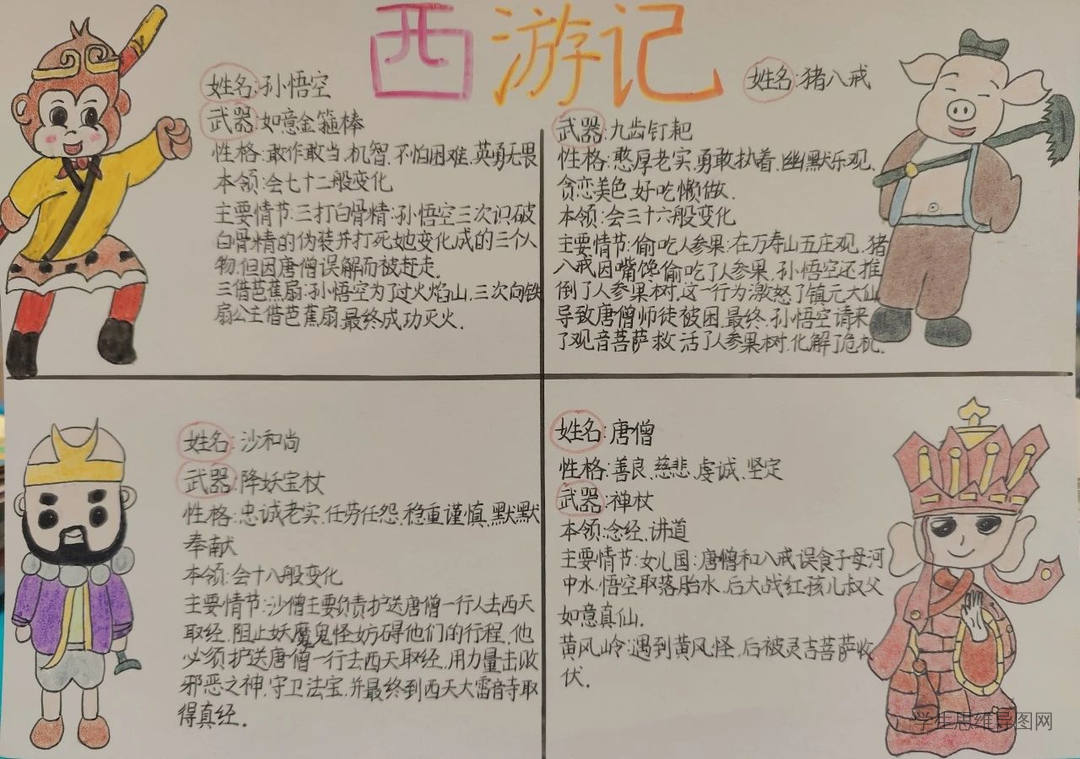 西游记
姓名:孙悟空
武器:如意金箍棒
性格:敢作敢当,机智,不怕困难,英勇无畏
本领:会七十二般变化
主要情节:三打白骨精:孙悟空三次识破
白骨精的伪装并打死她变化成的三个人
物,但因唐僧误解而被赶走.
三借芭蕉扇:孙悟空为了过火焰山,三次向铁
扇公主借芭蕉扇,最终成功灭火.
姓名:猪八戒
武器:九齿钉耙
性格:憨厚老实,勇敢执着,幽默乐观,
贪恋美色,好吃懒做.
本领:会三十六般变化
主要情节:偷吃人参果:在万寿山五庄观,猪
八戒因嘴馋偷吃了人参果,孙悟空还推
倒了人参果树,这一行为激怒了镇元大仙
导致唐僧师徒被困,最终,孙悟空请来
了观音菩萨救活了人参果树,化解了危机.
姓名:沙和尚
武器:降妖宝杖
性格:忠诚老实,任劳任怨,稳重谨慎,默默
奉献
本领:会十八般变化
主要情节:沙僧主要负责护送唐僧一行人去西天
取经,阻止妖魔鬼怪妨碍他们的行程,他
必须护送唐僧一行去西天取经,用力量击败
邪恶之神,守卫法宝,并最终到西天大雷音寺取
得真经.
姓名:唐僧
性格:善良,慈悲,虔诚,坚定
武器:禅杖
本领:念经,讲道
主要情节:女儿国:唐僧和八戒误食子母河
中水,悟空取落胎水,后大战红孩儿叔父
如意真仙.
黄风岭:遇到黄风怪,后被灵吉菩萨收
伏.
学生思维导图网